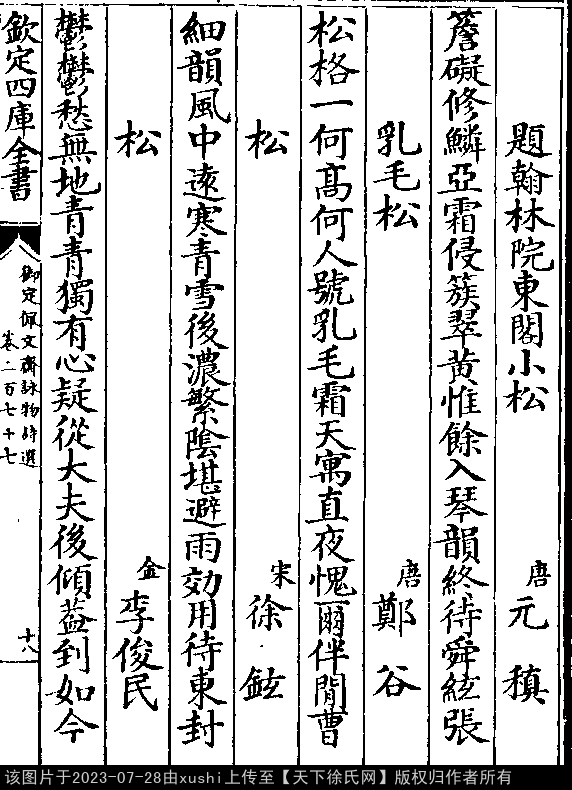 題翰林院東閣小松
唐元稹
簷礙修鱗亞霜侵簇翠黄惟餘入琴韻終待舜絃張
乳毛松
唐鄭谷
松格一何髙何人號乳毛霜天寓直夜愧爾伴閒曹
松
宋徐鉉
細韻風中逺寒青雪後濃繁陰堪避雨効用待東封
松
金李俊民
鬱鬱愁無地青青獨有心疑從大夫後傾葢到如今
欽定四庫全書
御定佩文齋詠物詩選
卷二百七十七
十八
该图片于2023-07-28由xushi上传至【天下徐氏网】版权归作者所有